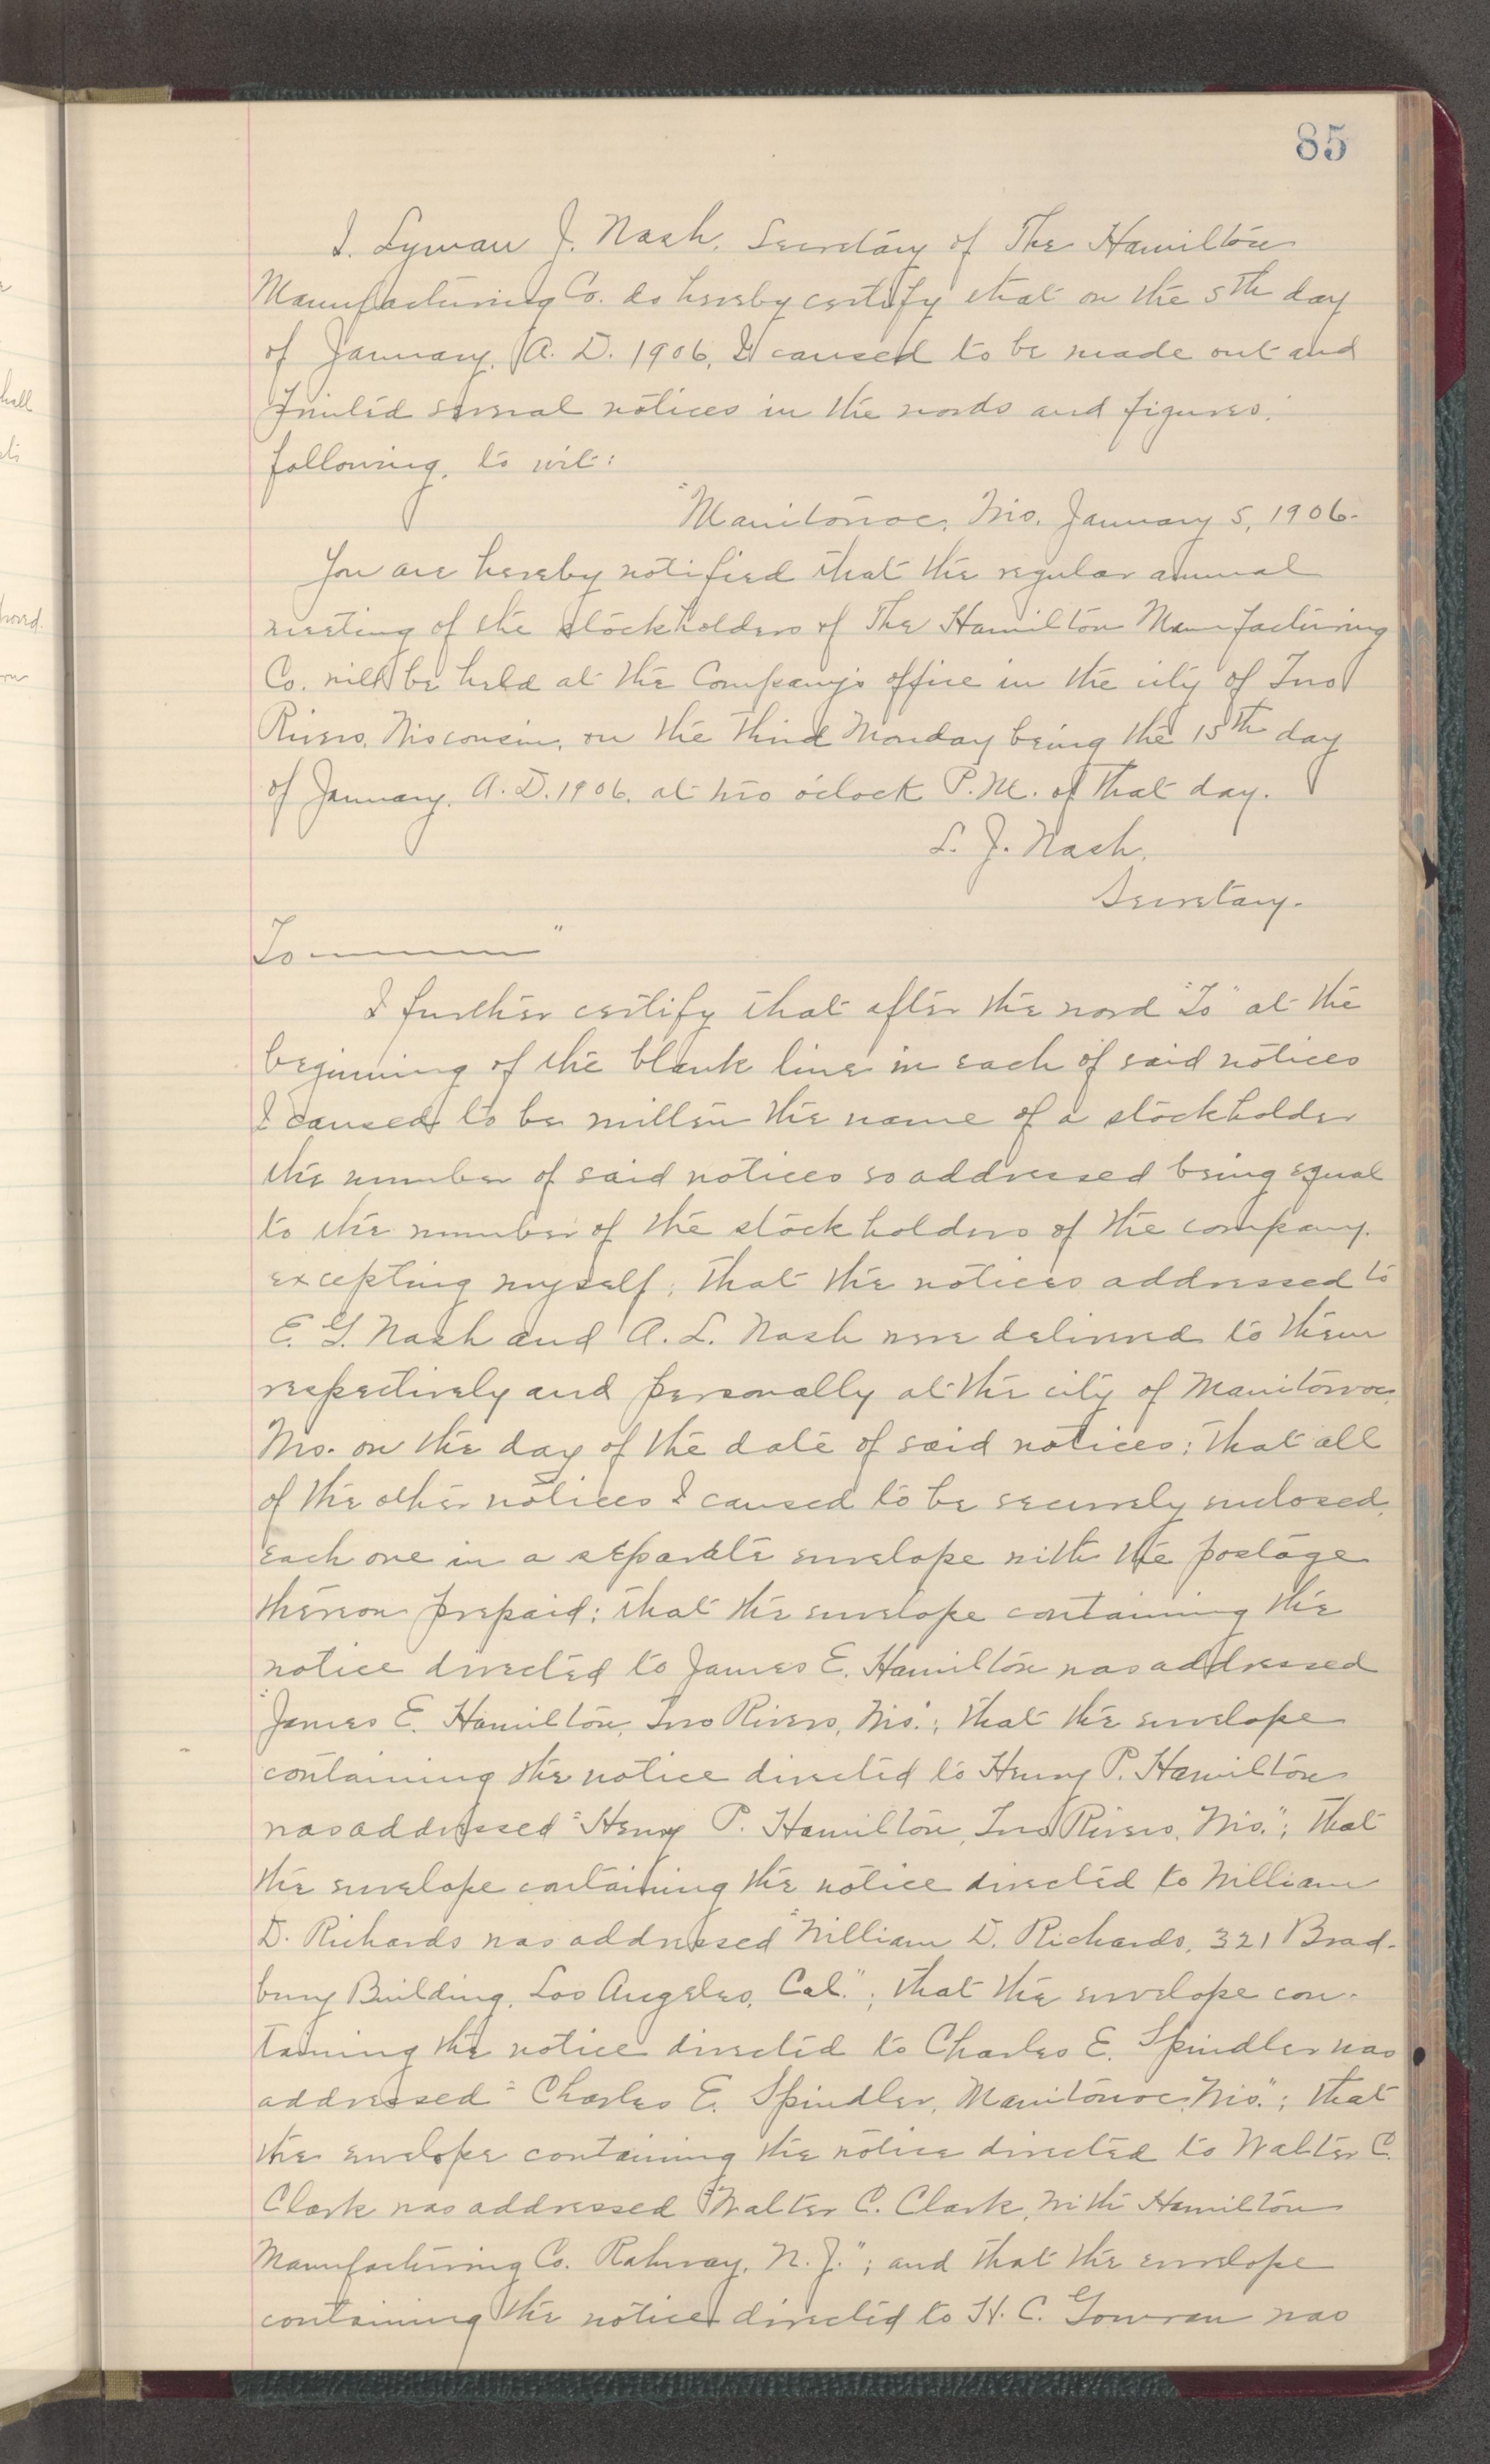 85
I. Lyman J. Nash, Secretary of The Hamilton
Manufacturing Co. do hereby certify that on the 5th day
of January, A. D. 1906, I caused to be made out and
printed several notices in the words and figures
following, to wit:
"Manitowoc, Wis. January 5, 1906.
You are hereby notified that the regular annual
meeting of the stockholders of The Hamilton Manufacturing
Co. will be held at the Company's office in the city of Two
Rivers, Wisconsin, on the third Monday being the 15th day
of January, A. D. 1906, at two o'clock P. M. of that day.
L. J. Nash,
Secretary.
To "
I further certify that after the word "To" at the
beginning of the blank line in each of said notices
I caused to be written the name of a stockholder
the number of said notices so addressed being equal
to the number of the stockholders of the company,
excepting myself; that the notices addressed to
E. G. Nash and A. L. Nash were delivered to them
respectively and personally at the city of Manitowoc,
Wis. on the day of the date of said notices; that all
of the other notices I caused to be securely enclosed,
each one in a separate envelope with the postage
thereon prepaid; that the envelope containing the
notice directed to James E. Hamilton was addressed
"James E. Hamilton, Two Rivers, Wis."; that the envelope
containing the notice directed to Henry P. Hamilton
was addressed "Henry P. Hamilton, Two Rivers, Wis."; that
the envelope containing the notice directed to William
D. Richards was addressed "William D. Richards, 321 Brad-
bury Building, Los Angeles, Cal."; that the envelope con-
taining the notice directed to Charles E. Spindler was
addressed "Charles E. Spindler, Manitowoc, Wis."; that
the envelope containing the notice directed to Walter C.
Clark was addressed "Walter C. Clark, with Hamilton
Manufacturing Co. Rahway, N. J."; and that the envelope
containing the notice directed to H. C. Gowran was